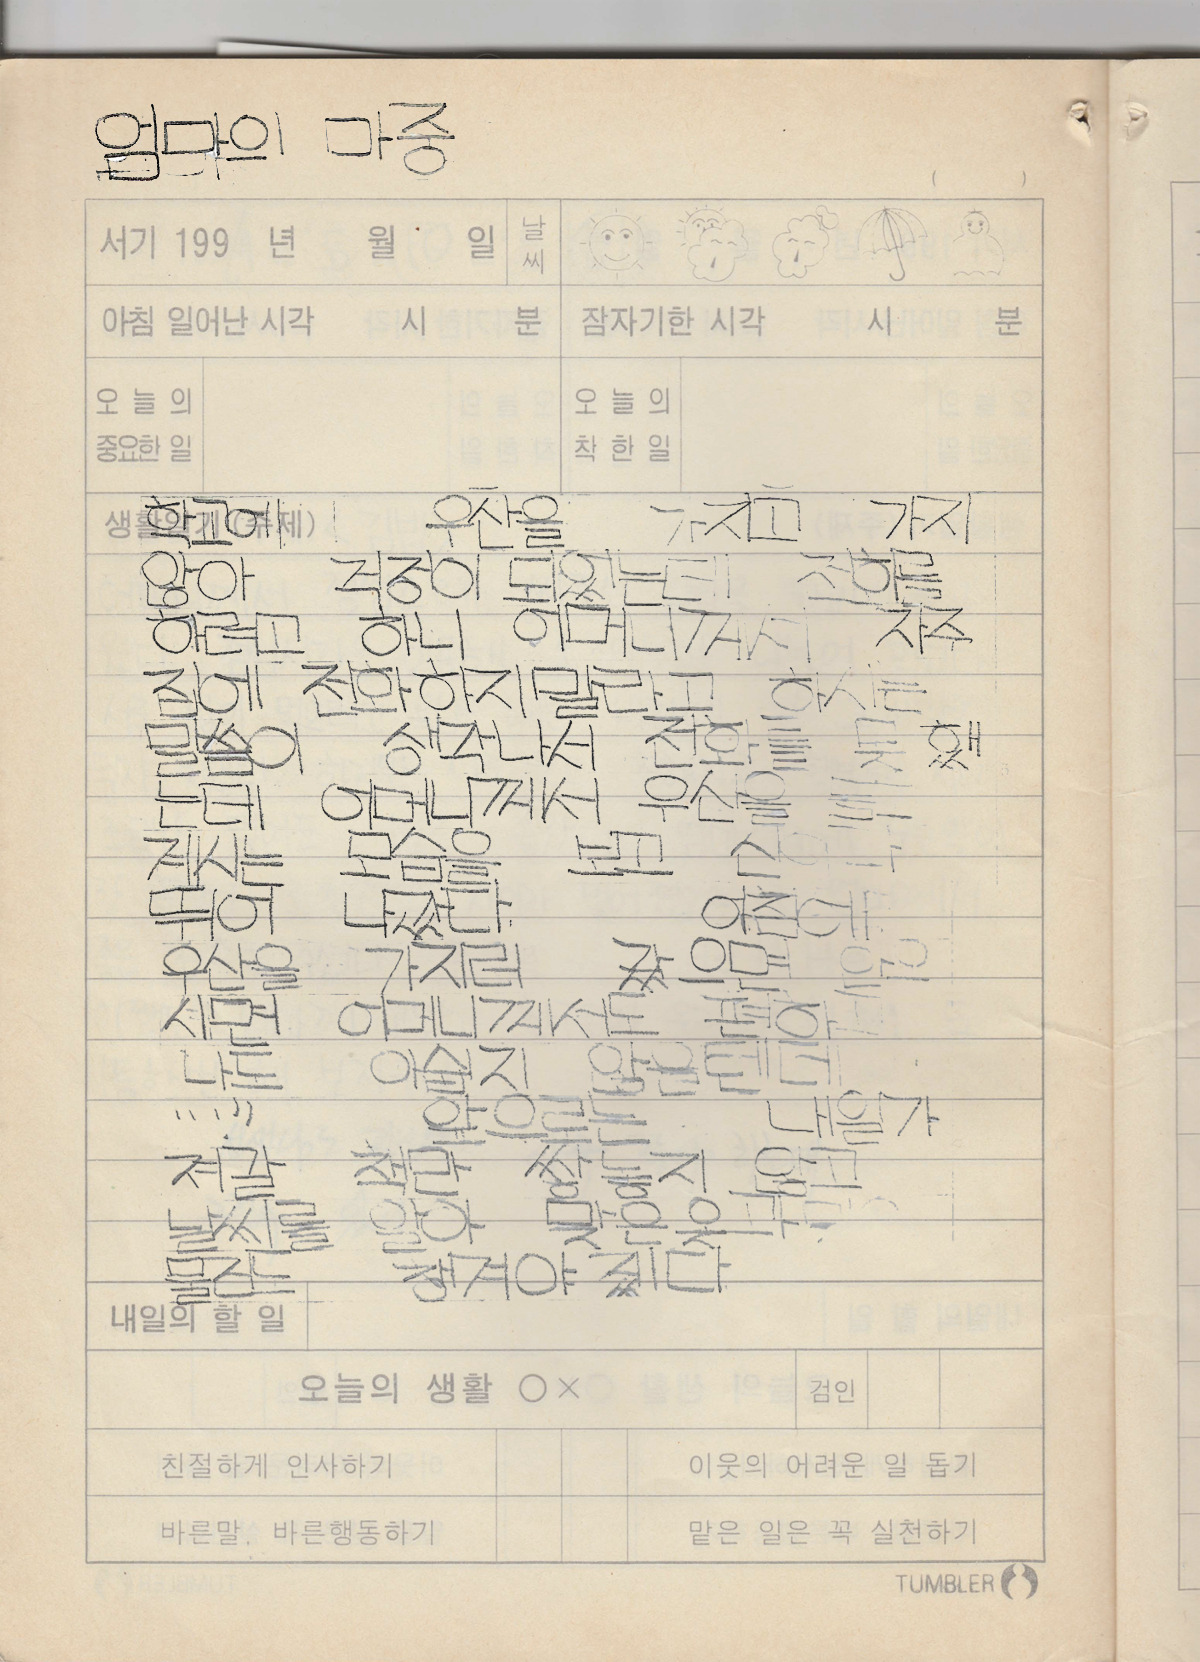 엄마의 마중
서기 199 년 월 일 날씨
아침 일어난 시각 시 분 잠자기한 시각 시 분
오늘의 중요한 일 오늘의 착한 일
생활일기(주제)
학교에 우산을 가지고 가지
않아 걱정이 되었는데 전화를
하려고 하니 어머니께서 자주
집에 전화하지말라고 하시는
말씀이 생각나서 전화를 못 했
는데 어머니께서 우산을 들고
계시는 모습을 보고
뛰어 나갔다.
우산을 가지러 갔으면
시면 어머니께서도 편하고
나도 아쉽지 않을텐데
앞으로는 내일 가
져갈 책만 쌓는지
날씨를 알아
물건도 챙겨야 겠다
내일의 할 일
오늘의 생활 ○× 검인
친절하게 인사하기 이웃의 어려운 일 돕기
바른말, 바른행동하기 맡은 일은 꼭 실천하기
TUMBLER